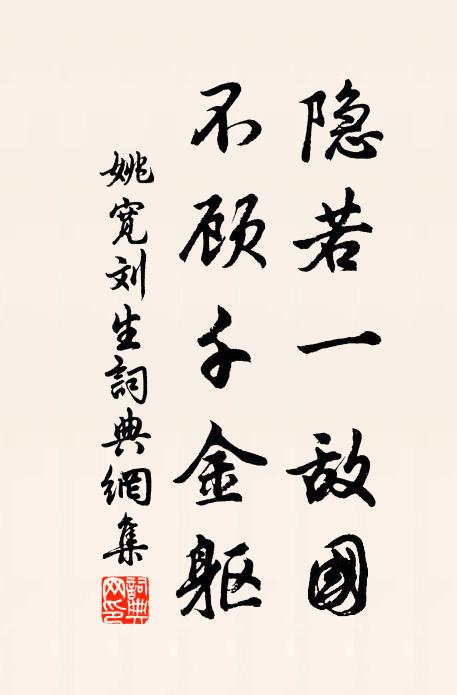 隐若一敌國
不顾千金躯
姚寛刘生詞典網集
詞典网印